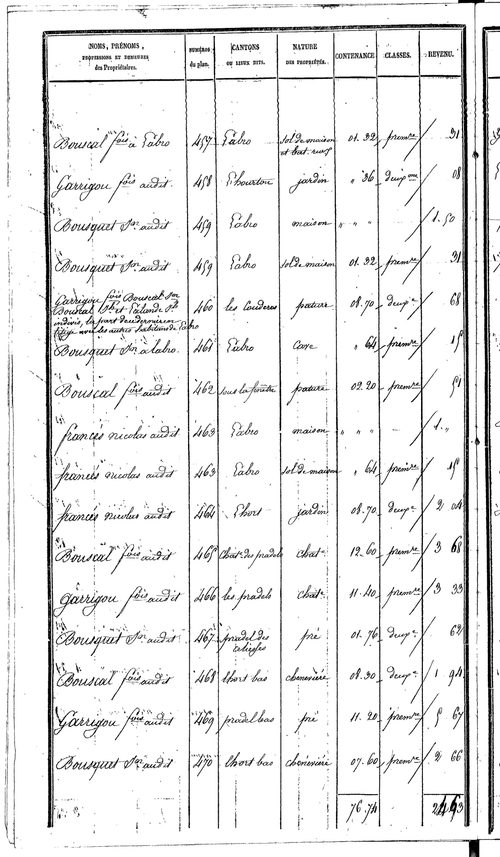 NOMS, PRÉNOMS, PROFESSIONS ET DEMEURES des Propriétaires. NUMÉROS du plan. CANTONS OU LIEUX DITS. NATURE DES PROPRIÉTÉS. CONTENANCE. CLASSES. REVENU.
Bouscal fois à Labro 457 Labro sol de maison et bat. rural 01.32 premre 31
Garrigou fois audit 458 Lhourtou jardin " 36 deuxme 08
Bousquet Jn audit 459 Labro maison " " " 1.50
Bousquet Jn audit 459 Labro sol de maison 01.32 premre 31
Garrigou fois Bouscal Jn
Bouscal et Lalande
indivis, la part de ce dernier en
litige avec les autres habitans de Labro 460 les Couderes pature 08.70 deuxe 68
Bousquet Jn à labro. 461 Labro Cave " 64 premre 15
Bouscal fois audit 462 pature 02.20 premre 51
francés nicolas audit 463 Labro maison " " " 1. "
francés nicolas audit 463 Labro sol de maison " 64 premre 15
francés nicolas audit 464 Lhort jardin 08.70 deuxe 2 04
Bouscal fois audit 465 Chatre des pradels chatre 12.60 premre 3 68
Garrigou fois audit 466 les pradels chatre 11.40 premre 3 33
Bousquet Jn audit 467 pradel des pré 01.76 deuxe 62
Bouscal fois audit 468 lhort bas cheneviére 08.30 deuxe 1 94
Garrigou fois audit 469 pradel bas pré 11.20 premre 5 67
Bousquet Jn audit 470 lhort bas cheneviére 07.60 premre 2 66
76.74